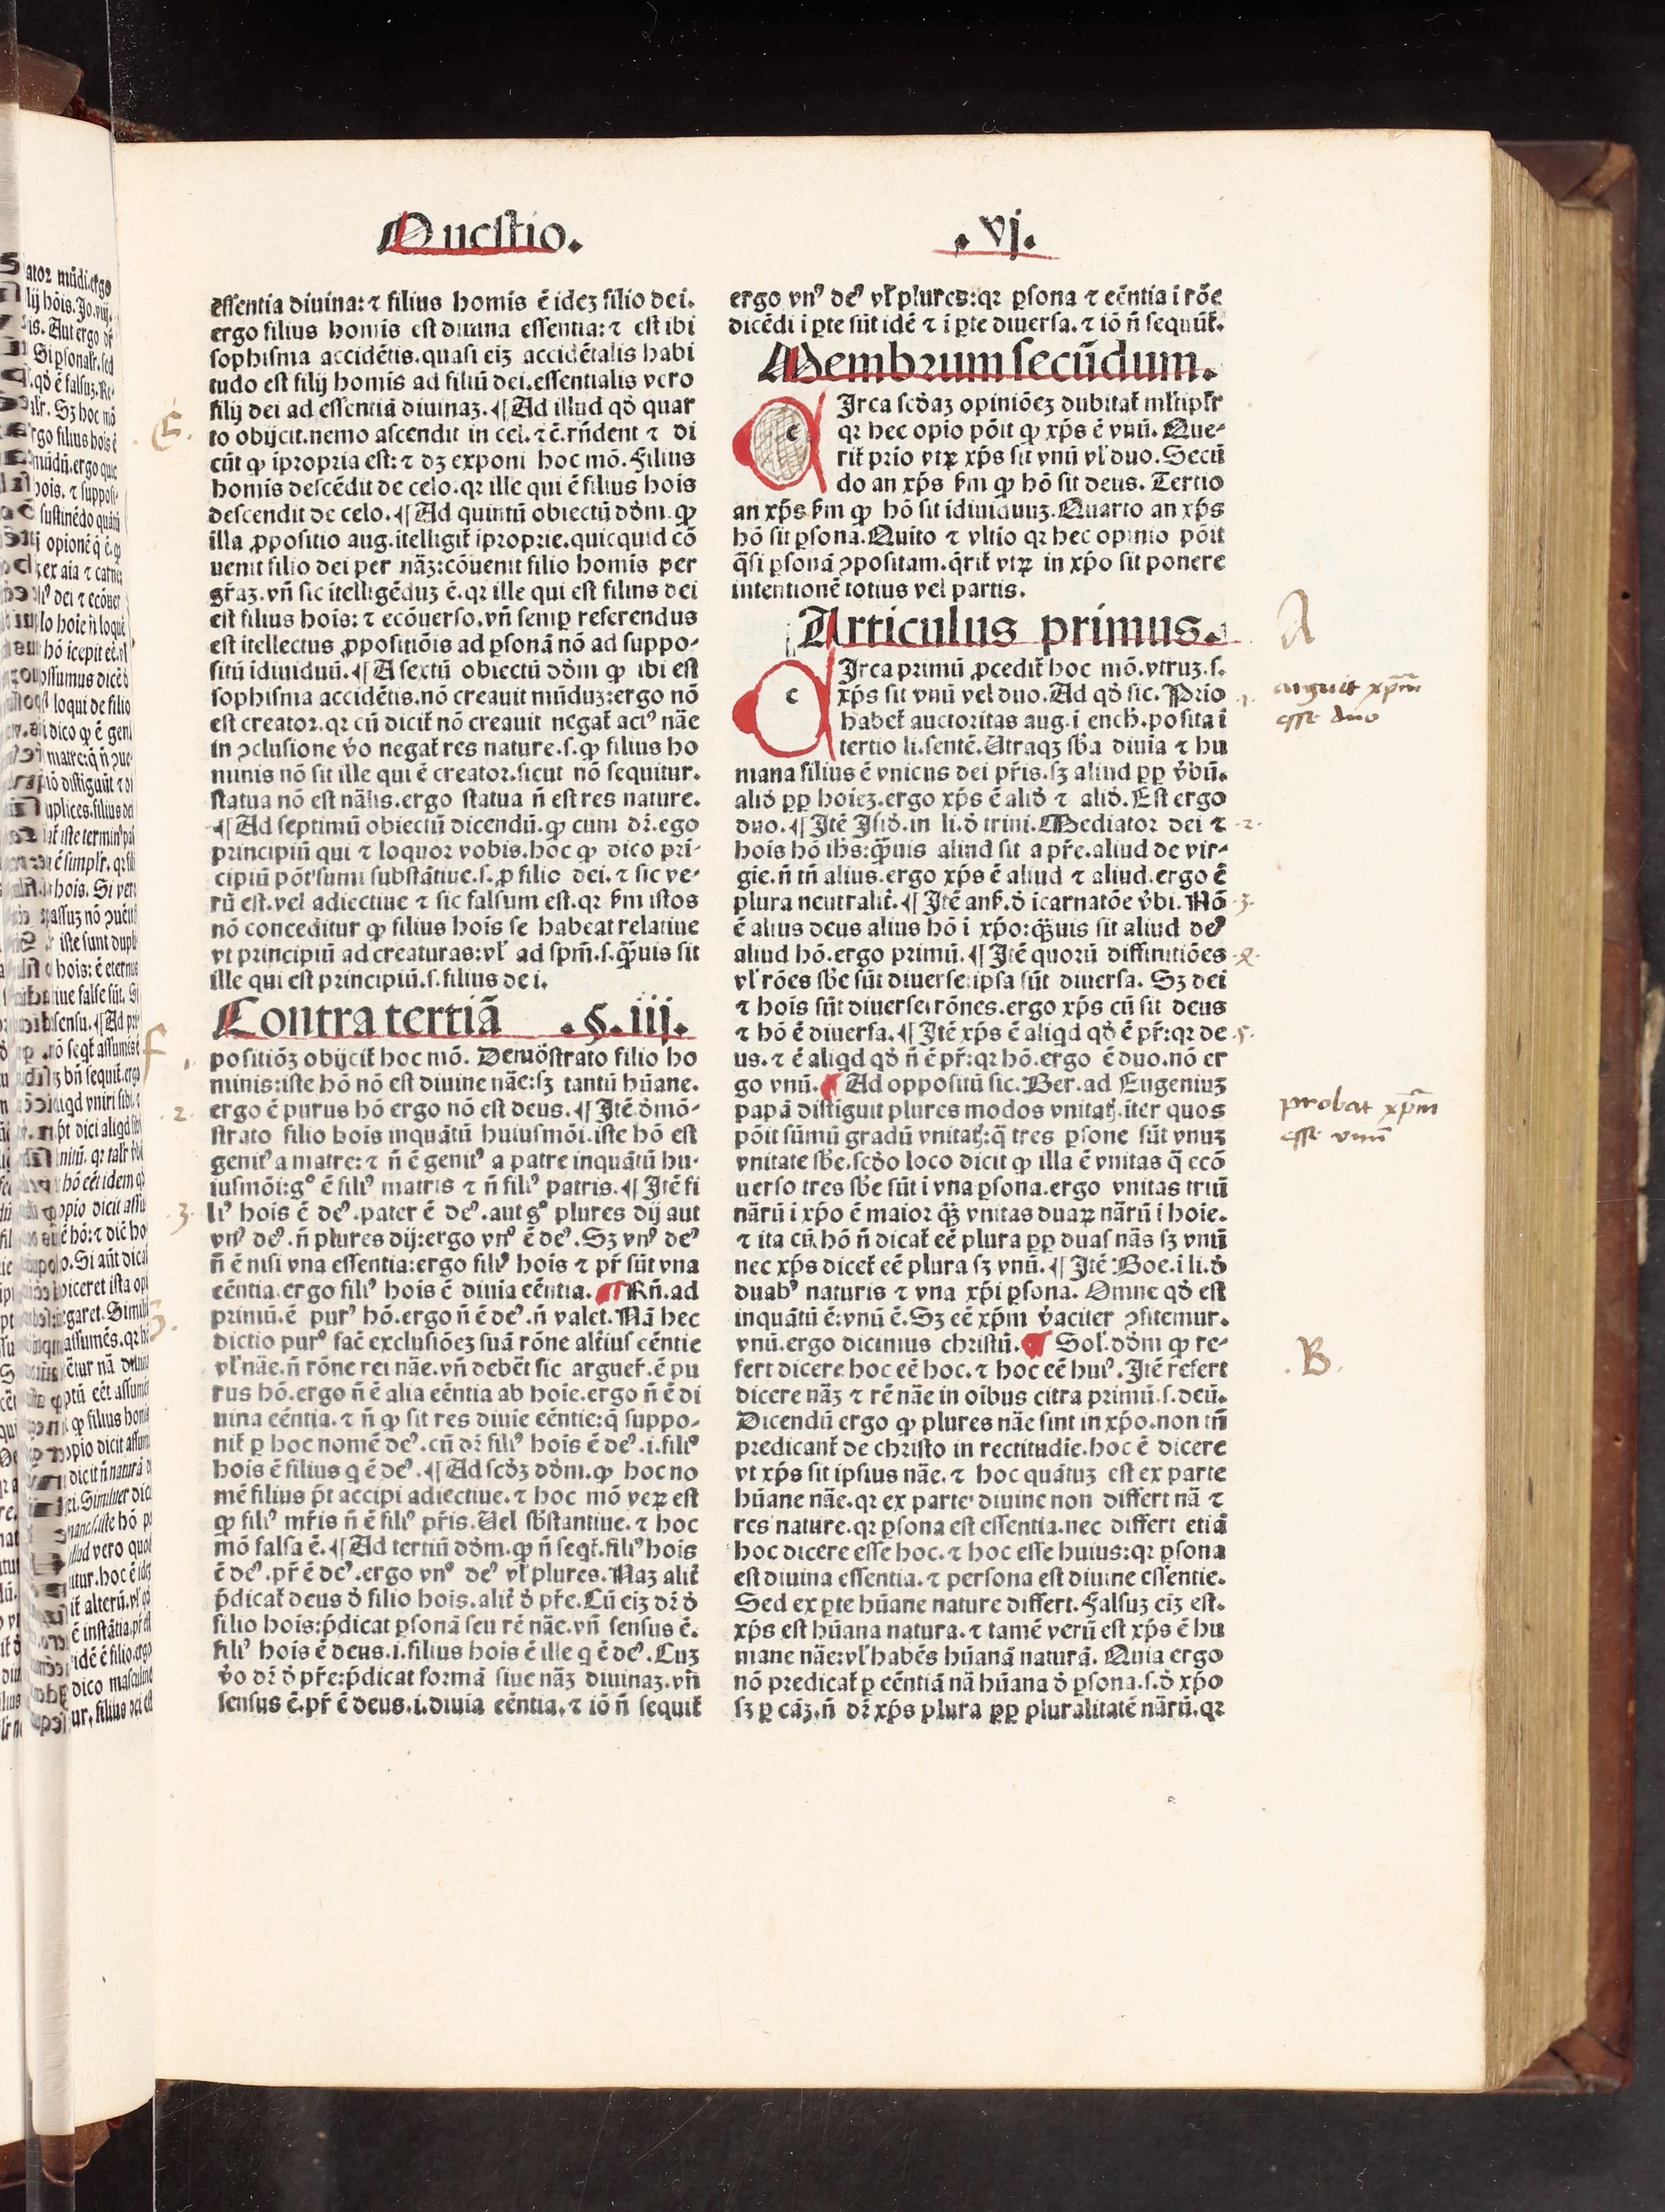 Questio. .vj.
essentia diuina: ⁊ filius homis ē idez filio dei.
ergo filius homis est diuina essentia: ⁊ est ibi
sophisma accidētis. quasi eiꝫ accidētalis habi
tudo est filij homis ad filiū dei. essentialis vero
filij dei ad essentiā diuinaz. ¶ Ad illud qd̄ quar
to obijcit. nemo ascendit in cel. ⁊ c̄. rn̄dent ⁊ di
cūt ꝙ īpropria est: ⁊ dꝫ exponi hoc mō. Filius
homis descēdit de celo. qr ille qui ē filius hois
descendit de celo. ¶ Ad quintū obiectū dd̄m. ꝙ
illa ꝓpositio aug. itelligit̄ iproprie. quicquid cō
uenit filio dei per nāꝫ: cōuenit filio homis per
gr̄aꝫ. vn̄ sic itelligēduꝫ ē. qr ille qui est filius dei
est filius hois: ⁊ ecōuerso. vn̄ semꝑ referendus
est itellectus ꝓpositiōis ad ꝑsonā nō ad suppo-
sitū idiuiduū. ¶ A sextū obiectū dd̄m ꝙ ibi est
sophisma accidētis. nō creauit mūduꝫ: ergo nō
est creator. qr cū dicit̄ nō creauit negat̄ actꝰ nāe
in ꝯclusione v̄o negat̄ res nature. s. ꝙ filius ho
minis nō sit ille qui ē creator. sicut nō sequitur.
statua nō est nālis. ergo statua n̄ est res nature.
¶ Ad septimū obiectū dicendū. ꝙ cum dr̄. ego
principiū qui ⁊ loquor vobis. hoc ꝙ dico prī-
cipiū pōt sumi substātiue. s. ꝓ filio dei. ⁊ sic ve-
rū est. vel adiectiue ⁊ sic falsum est. qr fm istos
nō conceditur ꝙ filius hois se habeat relatiue
vt principiū ad creaturas: vl̄ ad spm̄. s. q̄uis sit
ille qui est principiū. s. filius dei.
Contra tertiā .§. iij.
positiōꝫ obijcit̄ hoc mō. Demōstrato filio ho
minis: iste hō nō est diuine nāe: sꝫ tantū hūane.
ergo ē purus hō ergo nō est deus. ¶ Itē dmō-
strato filio hois inquātū huiusmōi. iste hō est
genitꝰ a matre: ⁊ n̄ ē genitꝰ a patre inquātū hu-
iusmōi: gº ē filiꝰ matris ⁊ n̄ filiꝰ patris. ¶ Itē fi
liꝰ hois ē deꝰ. pater ē deꝰ. aut gº plures dij aut
vnꝰ deꝰ. n̄ plures dij: ergo vnꝰ ē deꝰ. Sꝫ vnꝰ deꝰ
n̄ ē nisi vna essentia: ergo filiꝰ hois ⁊ pr̄ sūt vna
eēntia. ergo filiꝰ hois ē diuia eēntia. ¶ Rn̄. ad
primū. ē purꝰ hō. ergo n̄ ē deꝰ. n̄ valet. Nā hec
dictio purꝰ fac̄ exclusiōeꝫ suā rōne alteriꝰ eēntie
vl̄ nāe. n̄ rōne rei nāe. vn̄ debēt sic arguer̄. ē pu
rus hō. ergo n̄ ē alia eēntia ab hoie. ergo n̄ ē di
uina eēntia. ⁊ n̄ ꝙ sit res diuie eēntie: q̄ suppo-
nit̄ ꝑ hoc nomē deꝰ. cū dr̄ filiꝰ hois ē deꝰ. i. filiꝰ
hois ē filius q ē deꝰ. ¶ Ad scd̄ꝫ dd̄m. ꝙ hoc no
mē filius pt̄ accipi adiectiue. ⁊ hoc mō veꝝ est
ꝙ filiꝰ mr̄is n̄ ē filiꝰ pr̄is. Uel sb̄stantiue. ⁊ hoc
mō falsa ē. ¶ Ad tertiū dd̄m. ꝙ n̄ seqt̄. filiꝰ hois
ē deꝰ. pr̄ ē deꝰ. ergo vnꝰ deꝰ vl̄ plures. Naꝫ alit̄
p̄dicat̄ deus d̄ filio hois. alit̄ d̄ pr̄e. Cū eiꝫ dr̄ d̄
filio hois: p̄dicat ꝑsonā seu rē nāe. vn̄ sensus ē.
filiꝰ hois ē deus. i. filius hois ē ille q ē deꝰ. Cuꝫ
v̄o dr̄ d̄ pr̄e: p̄dicat formā siue nāꝫ diuinaꝫ. vn̄
sensus ē. pr̄ ē deus. i. diuia eēntia. ⁊ iō n̄ sequit̄
ergo vnꝰ deꝰ vl̄ plures: qr ꝑsona ⁊ eēntia i rōe
dicēdi i ꝑte sūt idē ⁊ i ꝑte diuersa. ⁊ iō n̄ sequūt̄.
Membrum secūdum.
c Irca scd̄aꝫ opiniōeꝫ dubitat̄ mltipl̄r
qr hec opio pōit ꝙ xp̄s ē vnū. Que-
rit̄ prio vtꝝ xp̄s sit vnū vl̄ duo. Secū
do an xp̄s fm ꝙ hō sit deus. Tertio
an xp̄s fm ꝙ hō sit idiuiduuꝫ. Quarto an xp̄s
hō sit ꝑsona. Quito ⁊ vltio qr hec opinio pōit
q̄si ꝑsonā ꝯpositam. q̄rit̄ vtꝝ in xp̄o sit ponere
intentionē totius vel partis.
Articulus primus.
c Irca primū ꝓcedit̄ hoc mō. vtruꝫ. s.
xp̄s sit vnū vel duo. Ad qd̄ sic. Prio
habet̄ auctoritas aug. i ench̄. posita ī
tertio li. sentē. Utraqꝫ sb̄a diuia ⁊ hu
mana filius ē vnicus dei pr̄is. sꝫ aliud ꝓꝑ v̄bū.
alid̄ ꝓꝑ hoieꝫ. ergo xp̄s ē alid̄ ⁊ alid̄. Est ergo
duo. ¶ Itē Isid̄. in li. d̄ trini. Mediator dei ⁊
hois hō ihs: q̄uis aliud sit a pr̄e. aliud de vir-
gie. n̄ tn̄ alius. ergo xp̄s ē aliud ⁊ aliud. ergo ē
plura neutralit̄. ¶ Itē ans̄. d̄ icarnatōe v̄bi. Nō
ē alius deus alius hō i xp̄o: q̄uis sit aliud deꝰ
aliud hō. ergo primū. ¶ Itē quorū diffinitiōes
vl̄ rōes sb̄e sūt diuerse: ipsa sūt diuersa. Sꝫ dei
⁊ hois sūt diuerse rōnes. ergo xp̄s cū sit deus
⁊ hō ē diuersa. ¶ Itē xp̄s ē aliqd qd̄ ē pr̄: qr de
us. ⁊ ē aliqd qd̄ n̄ ē pr̄: qr hō. ergo ē duo. nō er
go vnū. ¶ Ad oppositū sic. Ber. ad Eugeniuꝫ
papā distiguit plures modos vnitatꝭ. iter quos
pōit sūmū gradū vnitatꝭ: q̄ tres ꝑsone sūt vnuꝫ
vnitate sb̄e. scd̄o loco dicit ꝙ illa ē vnitas q̄ ecō
uerso tres sb̄e sūt i vna ꝑsona. ergo vnitas triū
nārū i xp̄o ē maior q̄ꝫ vnitas duaꝝ nārū i hoie.
⁊ ita cū hō n̄ dicat̄ eē plura ꝓꝑ duas nās sꝫ vnū
nec xp̄s dicet̄ eē plura sꝫ vnū. ¶ Itē Boe. i li. d̄
duabꝰ naturis ⁊ vna xp̄i ꝑsona. Omne qd̄ est
inquātū ē: vnū ē. Sꝫ eē xp̄m v̄aciter ꝯfitemur.
vnū. ergo dicimus christū. ¶ Sol̄. dd̄m ꝙ re-
fert dicere hoc eē hoc. ⁊ hoc eē huiꝰ. Itē refert
dicere nāꝫ ⁊ rē nāe in oībus citra primū. s. deū.
Dicendū ergo ꝙ plures nāe sint in xp̄o. non tn̄
predicant̄ de christo in rectitudīe. hoc ē dicere
vt xp̄s sit ipsius nāe. ⁊ hoc quātuꝫ est ex parte
hūane nāe. qr ex parte diuine non differt nā ⁊
res nature. qr ꝑsona est essentia. nec differt etiā
hoc dicere esse hoc. ⁊ hoc esse huius: qr ꝑsona
est diuina essentia. ⁊ persona est diuine essentie.
Sed ex ꝑte hūane nature differt. Falsuꝫ eiꝫ est.
xp̄s est hūana natura. ⁊ tamē verū est xp̄s ē hu
mane nāe: vl̄ habēs hūanā naturā. Quia ergo
nō predicat̄ ꝑ eēntiā nā hūana d̄ ꝑsona. s. d̄ xp̄o
sꝫ ꝑ cāꝫ. n̄ dr̄ xp̄s plura ꝓꝑ pluralitatē nārū. qr
A
arguit xp̄m
esse duo
probat xp̄m
esse vnū
.B.